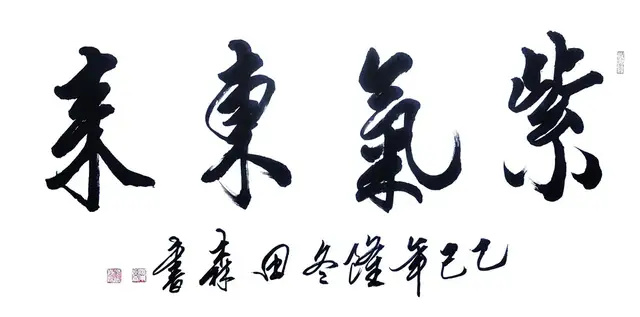 紫氣東来
乙巳年隆冬田森書